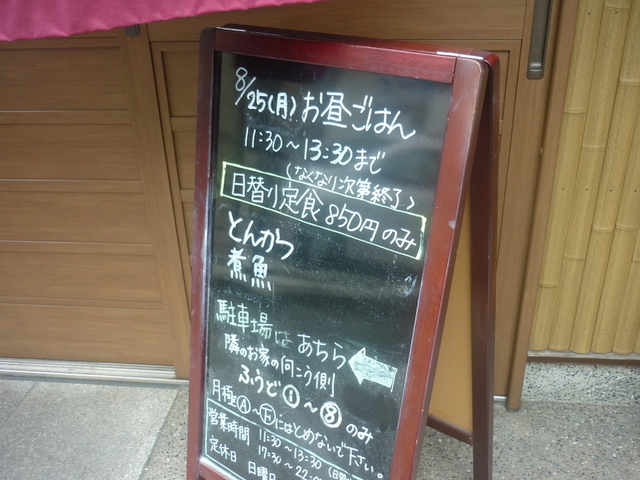 8/25(月)お昼ごはん
11:30～13:30まで
(なくなり次第終了)
日替り定食850円のみ
とんかつ
煮魚
駐車場はあちら
隣のお家の向こう側
ふうど①～⑧のみ
月極Ⓐ～Ⓕにはとめないで下さい。
営業時間 11:30～13:30(日祭
17:30～22:
定休日 日曜日